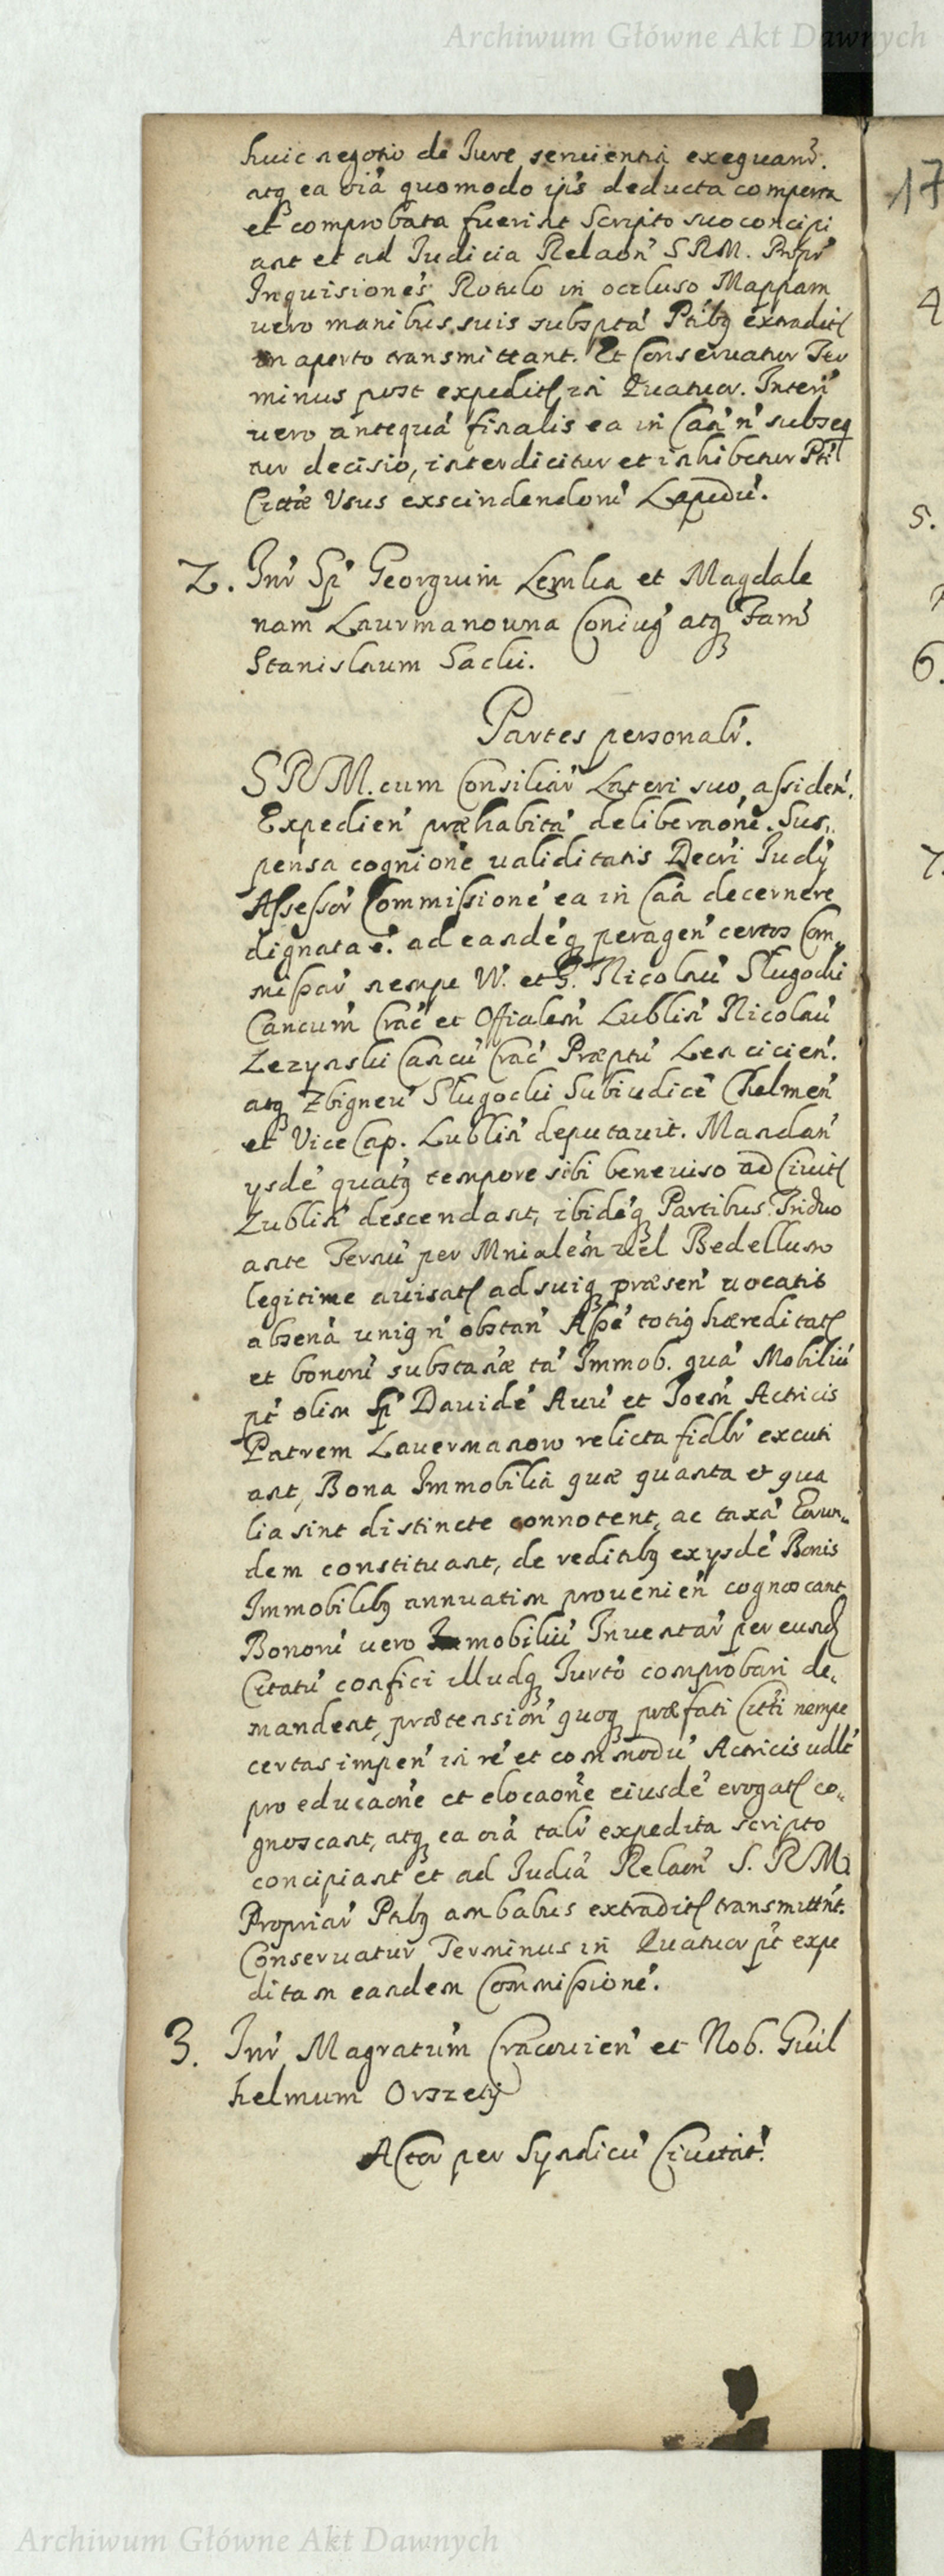 Archiwum Główne Akt Dawnych
huic negotio de Iure seruientia exequanr.
atq ea oia quomodo ijs deducta comperta
et comprobata fuerint Scripto suo concipi
ant et ad Iudicia Relaon S R M. Propr
Inquisiones Rotulo in occluso Mappam
uero manibus suis subscpta Ptibq extradit
in aperto transmittant. Et Conseruatur Ter
minus post expedit in Quatuor. Interi
uero antequa finalis ea in Caa n subseq
tur decisio, interdicitur et inhibetur Pti
Cittae Usus exscindendoru Lapidu.
2. Inr Sp Georguim Lemka et Magdale
nam Laurmanouna Coniug atq Fam
Stanislaum Sacki.
Partes personalr.
S R M. cum Consiliar Lateri suo assiden.
Expedien praehabita deliberaone. Sus„
pensa cognione ualiditatis Decri Iudij
Assessor Commissione ea in Caa decernere
dignata e. ad eandeq peragen certos Com„
missar nempe W. et G. Nicolau Slugocki
Cancum Crac et Offialem Lublin Nicolau
Zezynski Cancu Crac Praeptu Lencicien.
atq Zbigneu Slugocki Subiudice Chelmen
et Vice Cap. Lublin deputauit. Mandan
ysde quatq tempore sibi beneuiso ad Ciuit
Lublin descendant, ibideq Partibus Triduo
ante Termu per Mnialem uel Bedellum
legitime auisat ad suiq praesen uocatis
absena uniq n obstan Asse totiq haereditat
et bonoru substanae ta Immob. qua Mobiliu
pt olim Sp Dauide Auu et Joem Actricis
Patrem Lauermanow relicta fidlr excuti
ant, Bona Immobilia quae quanta et qua
lia sint distincte connotent, ac taxa Earun„
dem constituant, de reditibq exysde Bonis
Immobilibq annuatim prouenien cognoscant
Bonoru uero mobiliu Inuentar per eund
Citatu confici illudq Iurto comprobari de„
mandent, praetension quoq praefati Citti nempe
certas impen in re et commodu Actricis udlt
pro educaone et elocaone eiusde erogat co„
gnoscant, atq ea oia talr expedita scripto
concipiant et ad Iudia Relaon S. R M
Propriar Ptibq ambabus extradit transmittnt.
Conseruatur Terminus in Quatuor pt expe
ditam eandem Commissione.
3. Inr Magratum Cracouien et Nob. Guil
helmum Orszetij
Actor per Syndicu Ciuitat.
17
4
5.
6.
7.
Archiwum Główne Akt Dawnych